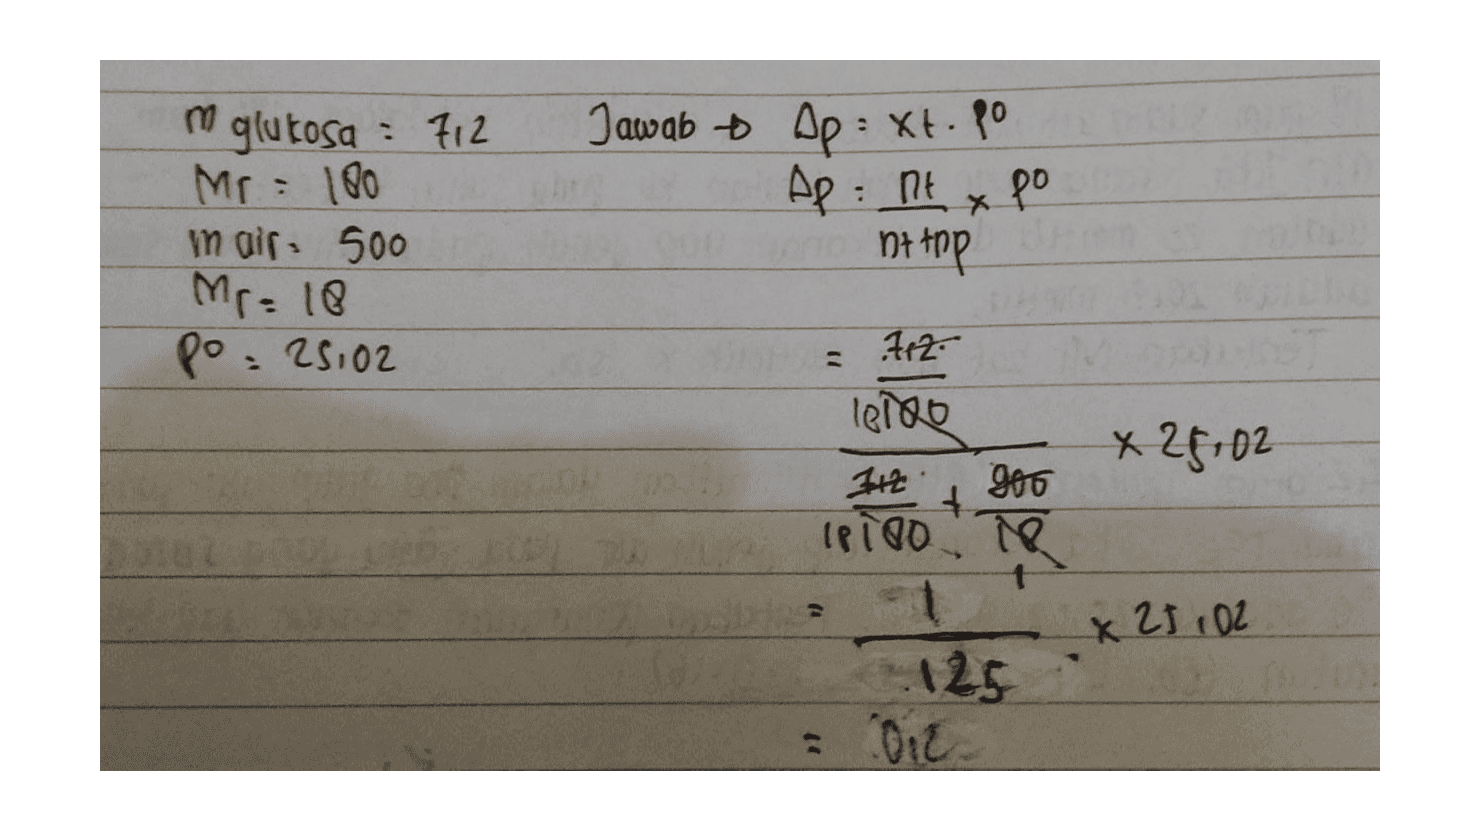 m glukosa = 7,2
Mr = 180
m air = 500
Mr = 18
P° = 25,02
Jawab → Δp = xt . P°
Δp = nt / nt + np × P°
= 7,2 / 180 / 7,2 / 180 + 900 / 18 × 25,02
= 1 / 125 × 25,02
= 0,2